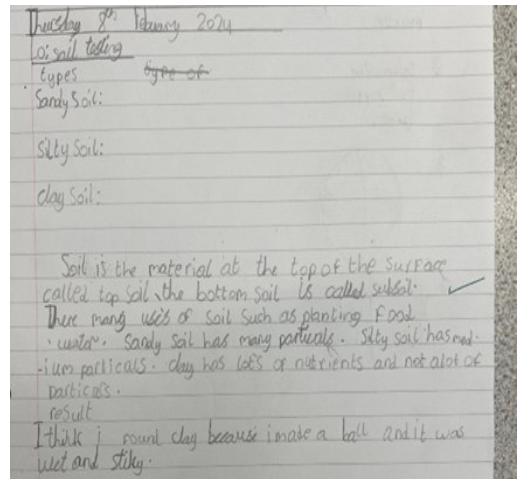 Thursday 8th February 2024
Lo: soil testing
types type of
Sandy Soil:
Silty Soil:
clay Soil:
Soil is the material at the top of the surface
called top soil, the bottom soil is called subsoil.
There many uses of soil such as planting Food
, water. Sandy soil has many particals. Silty soil has med-
-ium particals. clay has lots of nutrients and not alot of
particals.
result
I think i found clay because i made a ball and it was
wet and stiky.